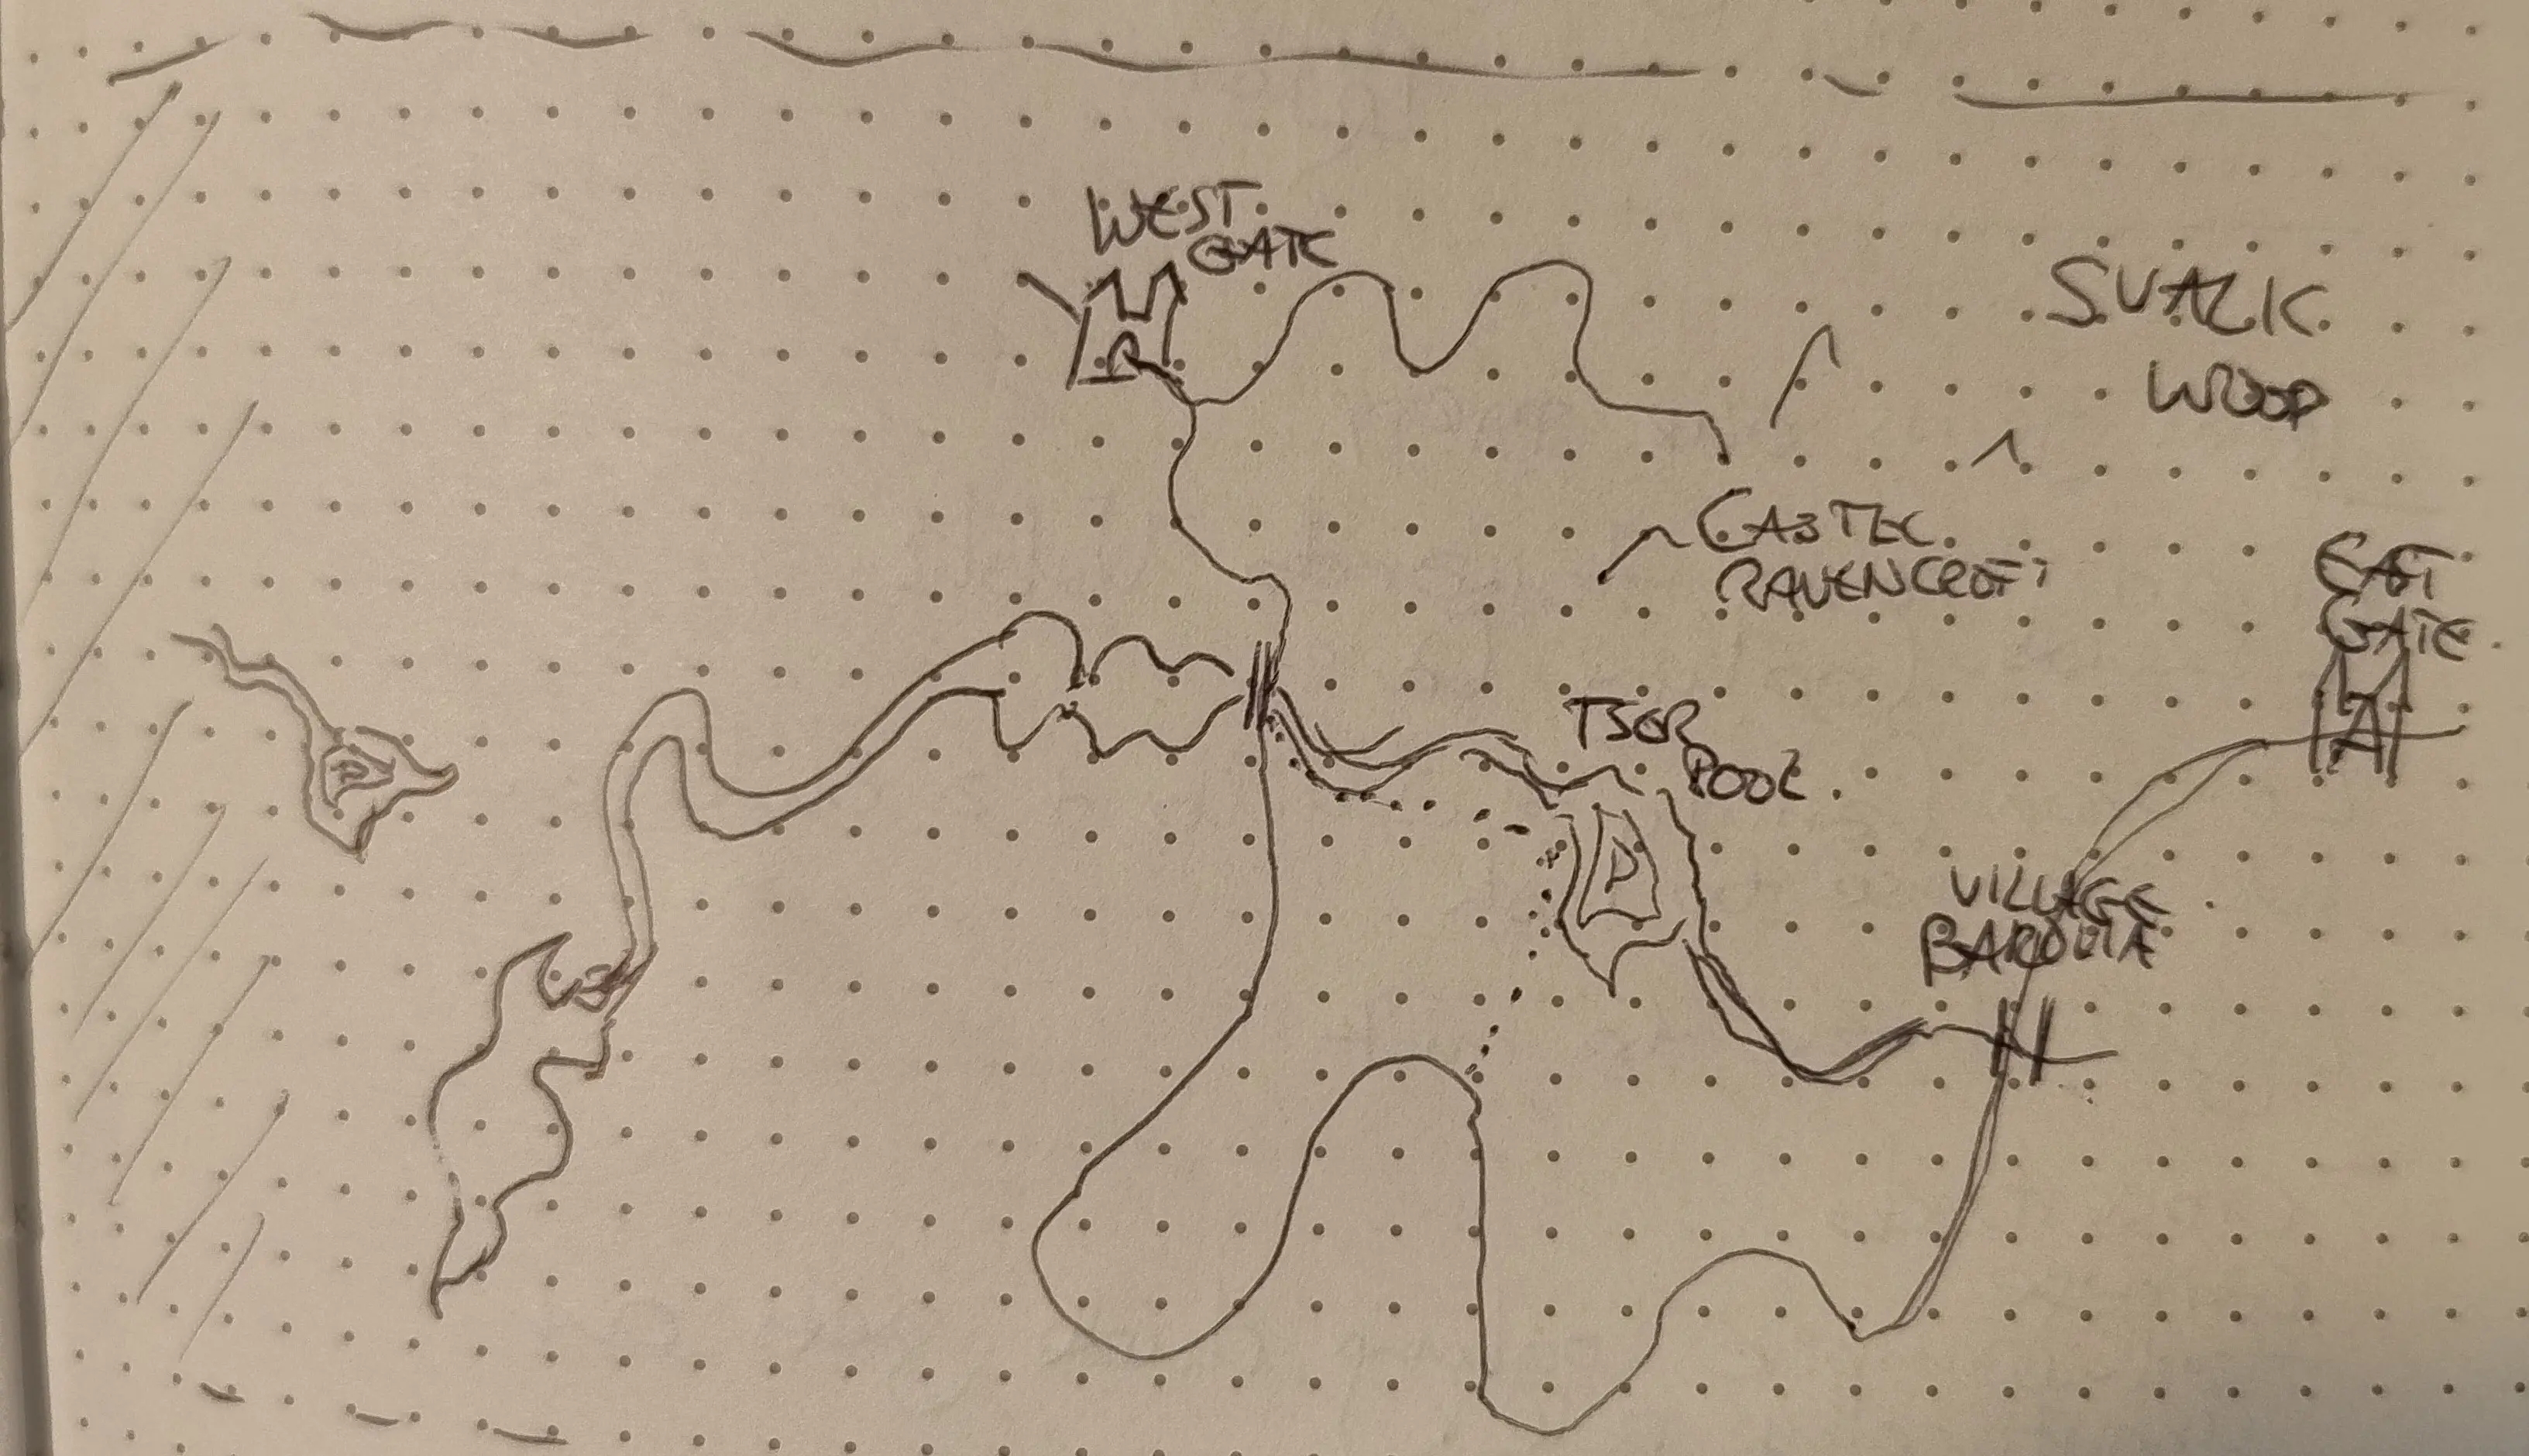 WEST
GATE
SVALK
WOOD
CASTLE
RAVENCROFT
EAST
GATE
TSER
POOL
VILLAGE
BAROVIA